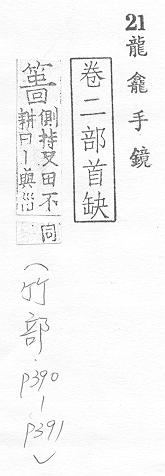 21 龍龕手鏡
卷二部首缺
側持反田不
耕曰丨與
同
(竹部·p390-p391)